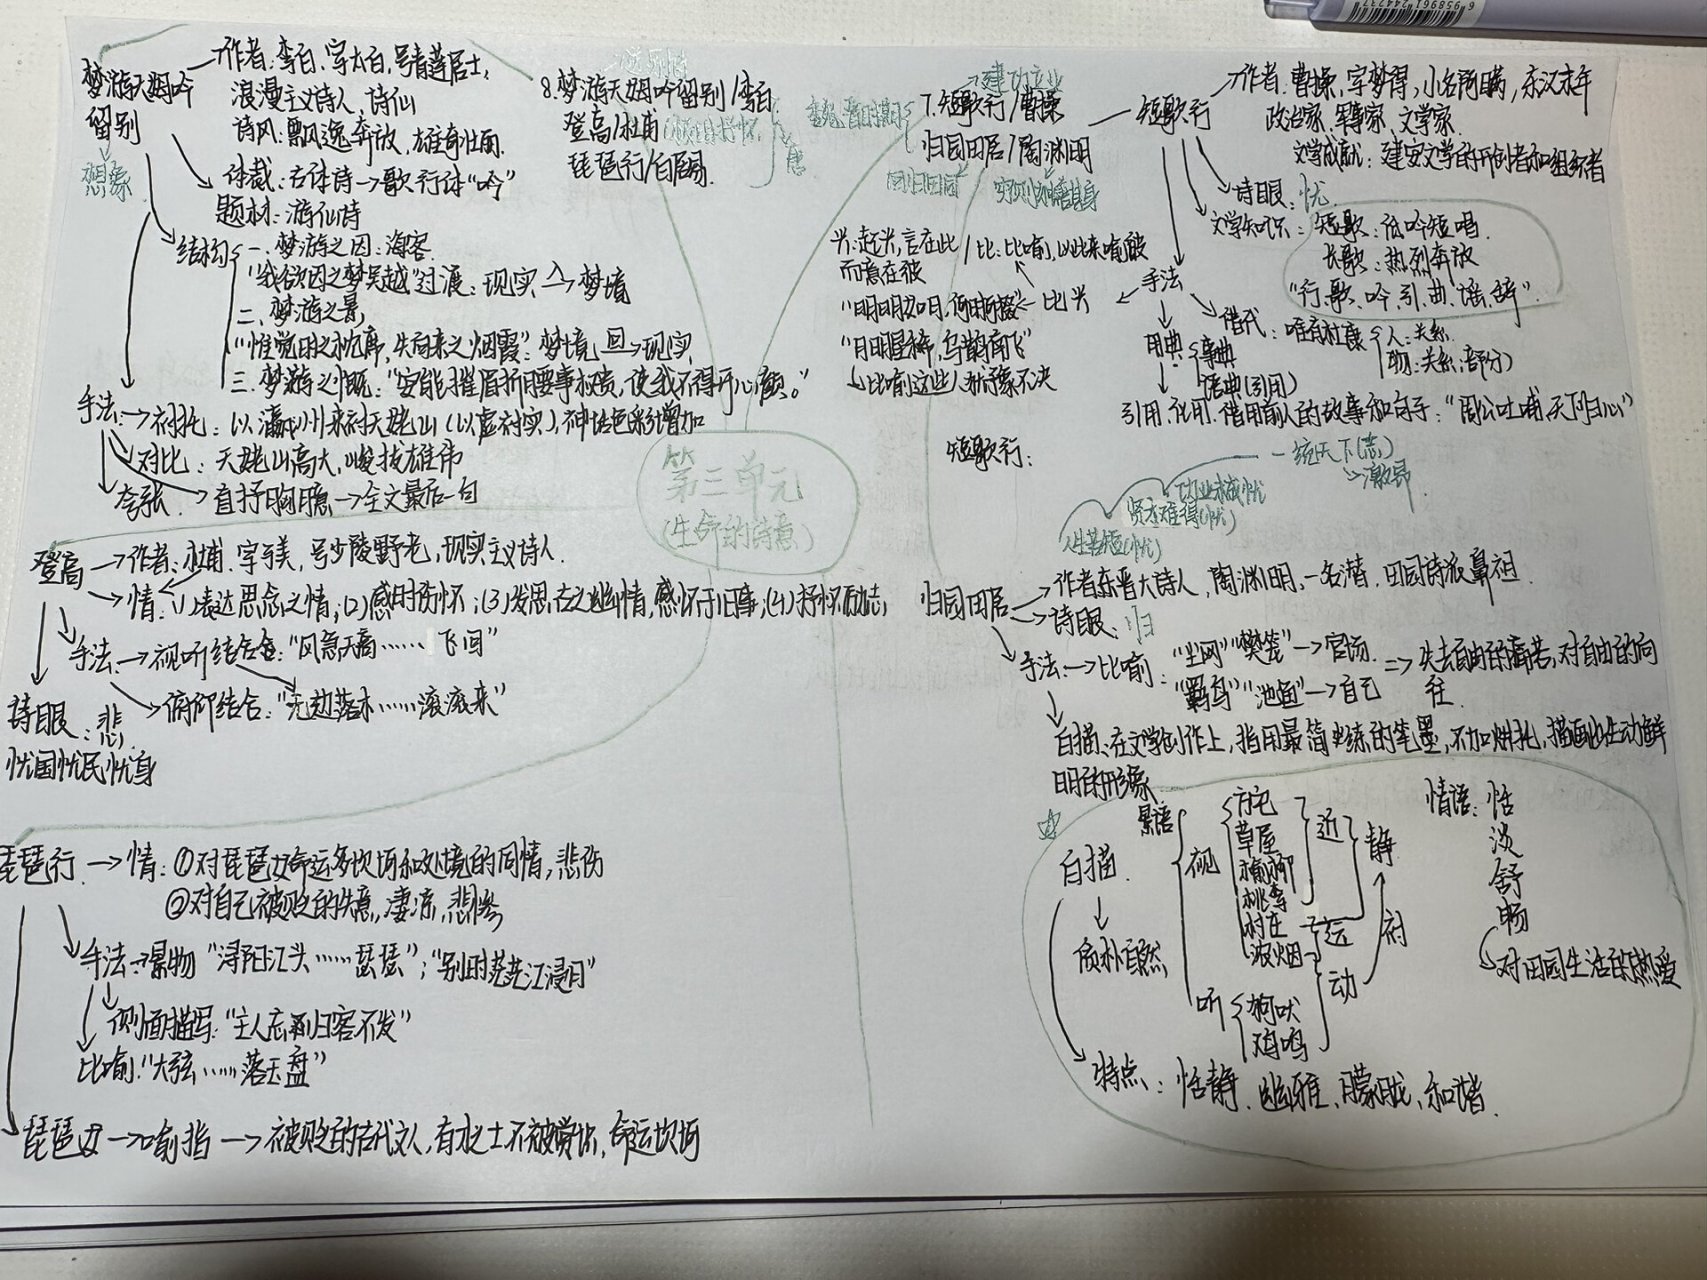 梦游天姥吟
留别
想象
作者:李白、字太白,号青莲居士,
浪漫主义诗人,诗仙
诗风:飘逸奔放,雄奇壮丽
体裁:古体诗→歌行体“吟”
题材:游仙诗
结构
一、梦游之因:海客
“我欲因之梦吴越”过渡:现实→梦境
二、梦游之景
“惟觉时之枕席,失向来之烟霞”:梦境回→现实
三、梦游之慨:“安能摧眉折腰事权贵,使我不得开心颜。”
手法:→衬托:以瀛洲来衬天姥山(以虚衬实),神话色彩增加
对比:天姥山高大,峻拔雄伟
夸张→直抒胸臆→全文最后一句
8.梦游天姥吟留别/李白
登高/杜甫
琵琶行/白居易
建功立业
7.短歌行/曹操
归园田居/陶渊明
回归田园
短歌行
作者:曹操,字梦得,小名阿瞒,东汉末年
政治家、军事家、文学家
文学成就:建安文学的开创者和组织者
诗眼:忧
文学知识:短歌:低吟短唱
长歌:热烈奔放
“行、歌、吟、引、曲、谣、辞”
手法
兴:起兴,言在此/比:比喻,以此来喻彼
而意在彼
“明明如月,何时可掇”←比兴
“月明星稀,乌鹊南飞”
↳比喻这些人才犹豫不决
借代:唯有杜康
人:关系
物:关系(部分)
用典
事典
语典(引用)
引用、化用、借用前人的故事和句子:“周公吐哺,天下归心”
短歌行:
人生苦短(忧)
贤才难得(忧)
功业未成(忧)
一统天下(志)
→激昂
第三单元
(生命的诗意)
登高→作者:杜甫、字子美,号少陵野老,现实主义诗人.
情:(1)表达思念之情;(2)感时伤怀;(3)发思古之幽情,感怀于旧事;(4)抒怀励志;
手法→视听结合:“风急天高……飞回”
俯仰结合:“无边落木……滚滚来”
诗眼:悲
忧国忧民忧身
归园田居→作者东晋大诗人,陶渊明,一名潜,田园诗派鼻祖
诗眼:归
手法→比喻:“尘网”“樊笼”→官场
“羁鸟”“池鱼”→自己
⇒失去自由的痛苦,对自由的向
往
白描:在文学创作上,指用最简炼的笔墨,不加烘托,描画出生动鲜
明的形象
白描
↓
质朴自然
景语
视
方宅
草屋
榆柳
桃李
村庄
浓烟
近
远
静
衬
动
听
狗吠
鸡鸣
情语:恬
淡
舒
畅
↳对田园生活的热爱
特点:恬静、幽雅、朦胧、和谐
琵琶行→情:①对琵琶女命运多坎坷和处境的同情,悲伤
②对自己被贬的失意,凄凉,悲惨
手法→景物“浔阳江头……瑟瑟”;“别时茫茫江浸月”
侧面描写:“主人忘归客不发”
比喻:“大弦……落玉盘”
琵琶女→喻指→被贬的古代文人,有才之士不被赏识,命运坎坷